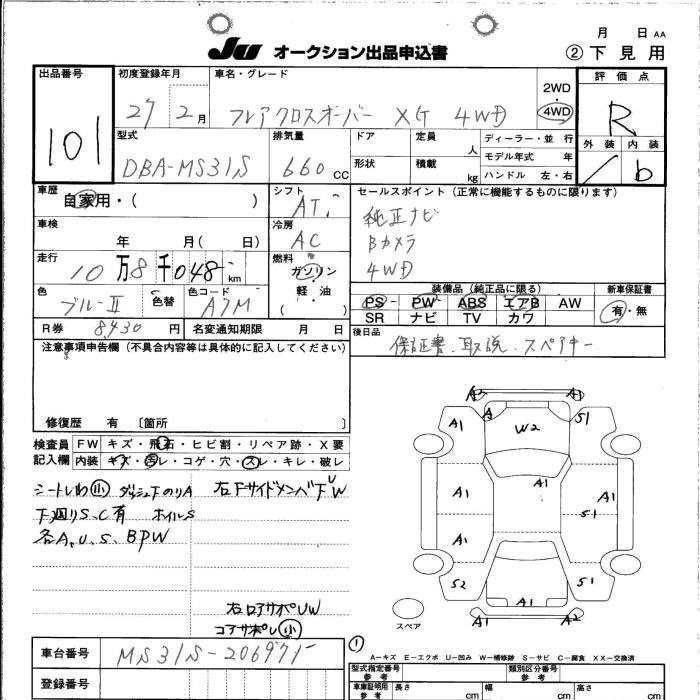 月 日 AA
JU オークション出品申込書
② 下見用
出品番号
101
初度登録年月
27年 2月
車名・グレード
フレアクロスオーバー XG 4WD
2WD
・
4WD
評価点
R
外装 内装
/ b
型式
DBA-MS31S
排気量
660 CC
ドア
定員 人
形状
積載 kg
ディーラー・並行
モデル年式 年
ハンドル 左・右
車歴
自家用・( )
シフト
AT
セールスポイント(正常に機能するものに限ります)
純正ナビ
Bカメラ
4WD
車検
年 月( 日)
冷房
AC
走行
10万8千048 km
燃料
ガソリン
・
軽・油
( )
装備品(純正品に限る)
PS PW ABS エアB AW
SR ナビ TV カワ
新車保証書
有・無
色
ブルーII
色替
色コード
A7M
R券 8430 円
名変通知期限 月 日
後日品
保証書、取説、スペアキー
注意事項申告欄(不具合内容等は具体的に記入してください)
修復歴 有 〔箇所 〕
検査員記入欄
FW キズ・飛石・ヒビ割・リペア跡・X要
内装 キズ・汚レ・コゲ・穴・スレ・キレ・破レ
シートしわ小 ダッシュ下のりA
下廻りS、C有 ホイルS
各A、U、S、BPW
右Fサイドメンバ下UW
右ロアサポUW
コアサポU小
A1 A1
A1 A S1
W2
A1
A1 A1
S1
A1
S2 S1
A1
A1 A2
スペア
①
A-キズ E-エクボ U-凹み W-補修跡 S-サビ C-腐食 XX-交換済
車台番号
MS31S-206971
登録番号
型式指定番号 参考
類別区分番号 参考
車庫証明用 参考
長さ cm
幅 cm
高さ cm